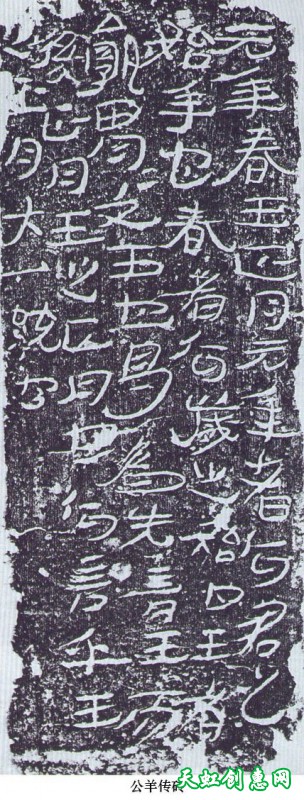 元年春王正月元年者何君之
始年也春者何歲之始也王者
孰胃文王也曷為先言王而
後正月王之正月也何言乎王
正月大一統也
公羊传砖
天虹创意网